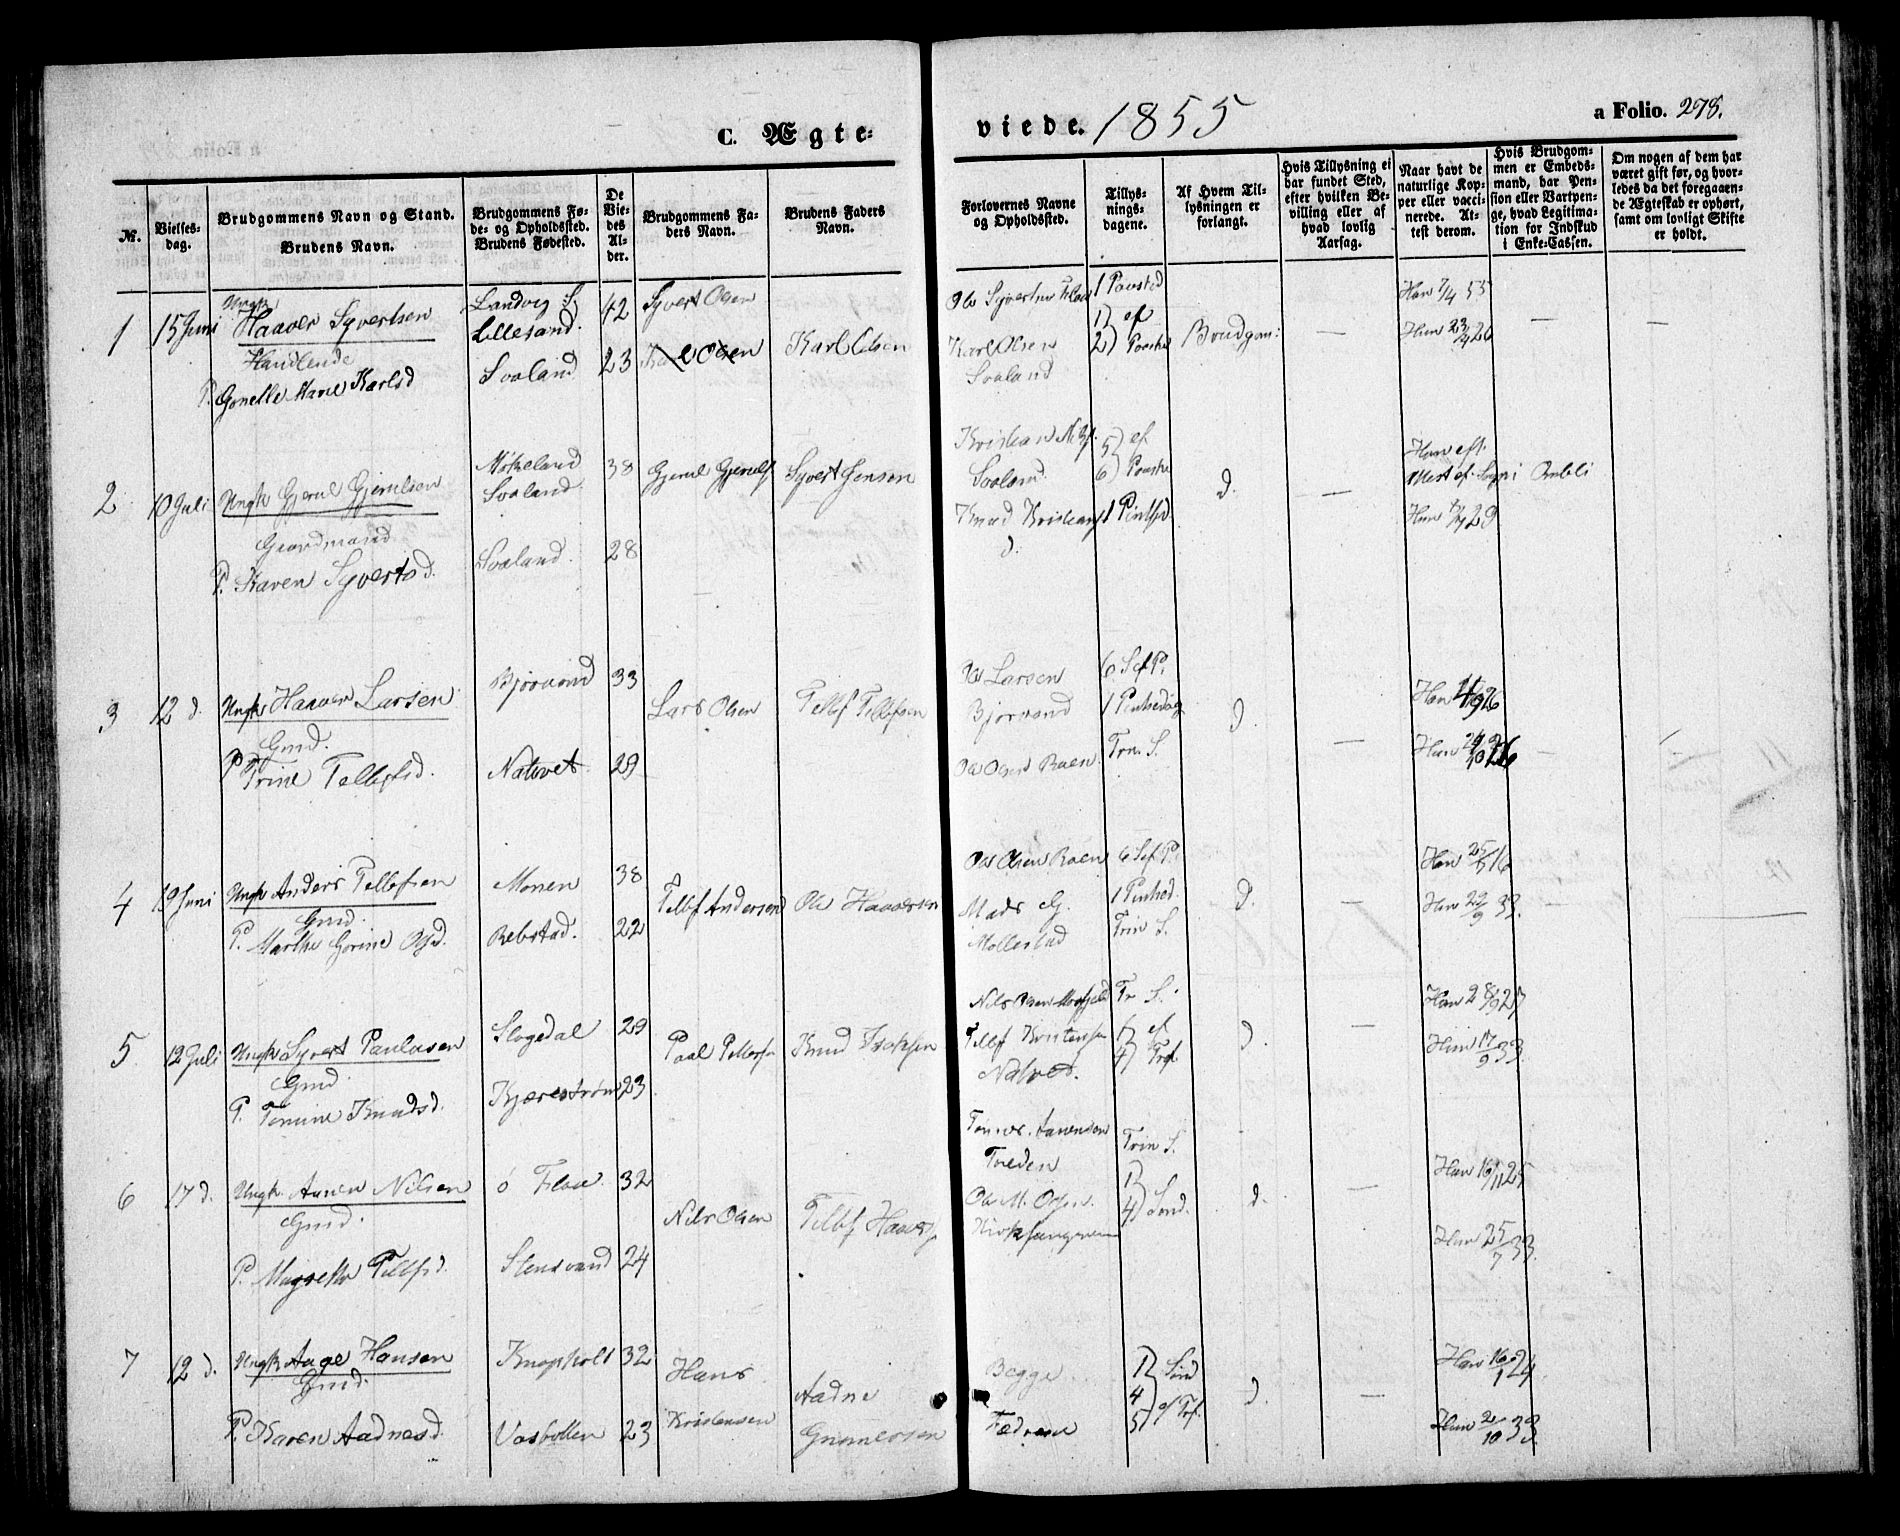 C. Ægte-
viede. 1855
a Folio. 278.
№.
Vielses-
dag.
Brudgommens Navn og Stand.
Brudens Navn.
Brudgommens Fø-
de- og Opholdssted.
Brudens Fødested.
De
Vie-
des
Al-
der.
Brudgommens Fa-
ders Navn.
Brudens Faders
Navn.
Forlovernes Navne
og Opholdssted.
Tillys-
nings-
dagene.
Af Hvem Til-
lysningen er
forlangt.
Hvis Tillysning ei
har fundet Sted,
efter hvilken Be-
villing eller af
hvad lovlig
Aarsag.
Naar havt de
naturlige Kop-
per eller vacci-
nerede. At-
test derom.
Hvis Brudgom-
men er Embeds-
mand, har Pen-
sion eller Vartpen-
ge, hvad Legitima-
tion for Indskud
i Enke-Cassen.
Om nogen af dem har
været gift før, og hvor-
ledes da det foregaaen-
de Ægteskab er ophørt,
samt om lovligt Skifte
er holdt.
1
15 Juni
Ungk
Haaver Syvertsen
Handlende
P. Gonelle Marie Karlsd
Landvig S
Lillesand.
Svaland
42
23
Syvert Olsen
Karl Olsen
Karl Olsen
Ole Syvertsen
Karl Olsen
Svaland
1)
2)
ef
Paaske
Brudgom:
—
Han 7/4 55
Hun 23/4 26
—
—
2
10 Juli
Ungk Gjerul Gjerulsen
Gaardmand
P. Karen Syvertsd.
Svaland
Svaland.
38
28
Gjerul Gjerulss
Syvert Jensen
Kristian
Svaland
Knud Kristians
d.
5)
6)
ef
Paaske
1 Pintsd.
d.
—
Han eft.
Attest ef.
Hun 29
3
12 d.
Ungk Haaver Larsen
Gmd.
P Trine Tellefsd.
Bjorvand
Natvet.
33
29
Lars Olsen
Tellef Tellefsen
Ole Larsen
Bjorvand
Ole Olsen Roen
6 S ef P.
1 Pintsedag
Trin S.
d
—
Han 26
Hun 26
—
4
19 Juni
Ungk Anders Tellefsen
Gmd.
P. Marthe Gorine Olsd.
Monen
Rebstad.
38
22
Tellef Andersen
Ole Haaversen
Ole Olsen Roen
Mads G.
Mollestad
6 S ef P.
1 Pintsed.
Trin S.
d.
—
Han 25/5 16
Hun 22/9 33.
—
5
12 Juli
Ungk Syvert Paulusen
Gmd.
P. Tomine Knudsd.
Slogedal
Kjærestrøm
29
23
Paal Pettersen
Knud Isaksen
Nils Olsen
Tellef Kristensen
Natved.
Tr S.
1)
4)
ef
Tref
d.
—
Han 28/9 27
Hun 17/9 33
6
17 d.
Ungk. Aanen Nilsen
Gmd.
P. Magrethe Tellefsd.
ø Flaa.
Stensvand
32
24
Nils Olsen
Tellef Haavers
Tomes. Aanensen
Treden
Ole M. Olsen.
Trin S.
1)
4) Sond.
d.
—
Han 16/11 25
Hun 25/7 33
7
12 d.
Ungk Aage Hansen
Gmd.
P. Karen Aadnesd.
Knapholt
Vasbotten
32
23
Hans
Kristensen
Aadne
Gunnersen
Begge
Fædrene
1)
4
5)
Sond
e/ Tref.
d
—
Han 16/1 24
Hun 2/10 33